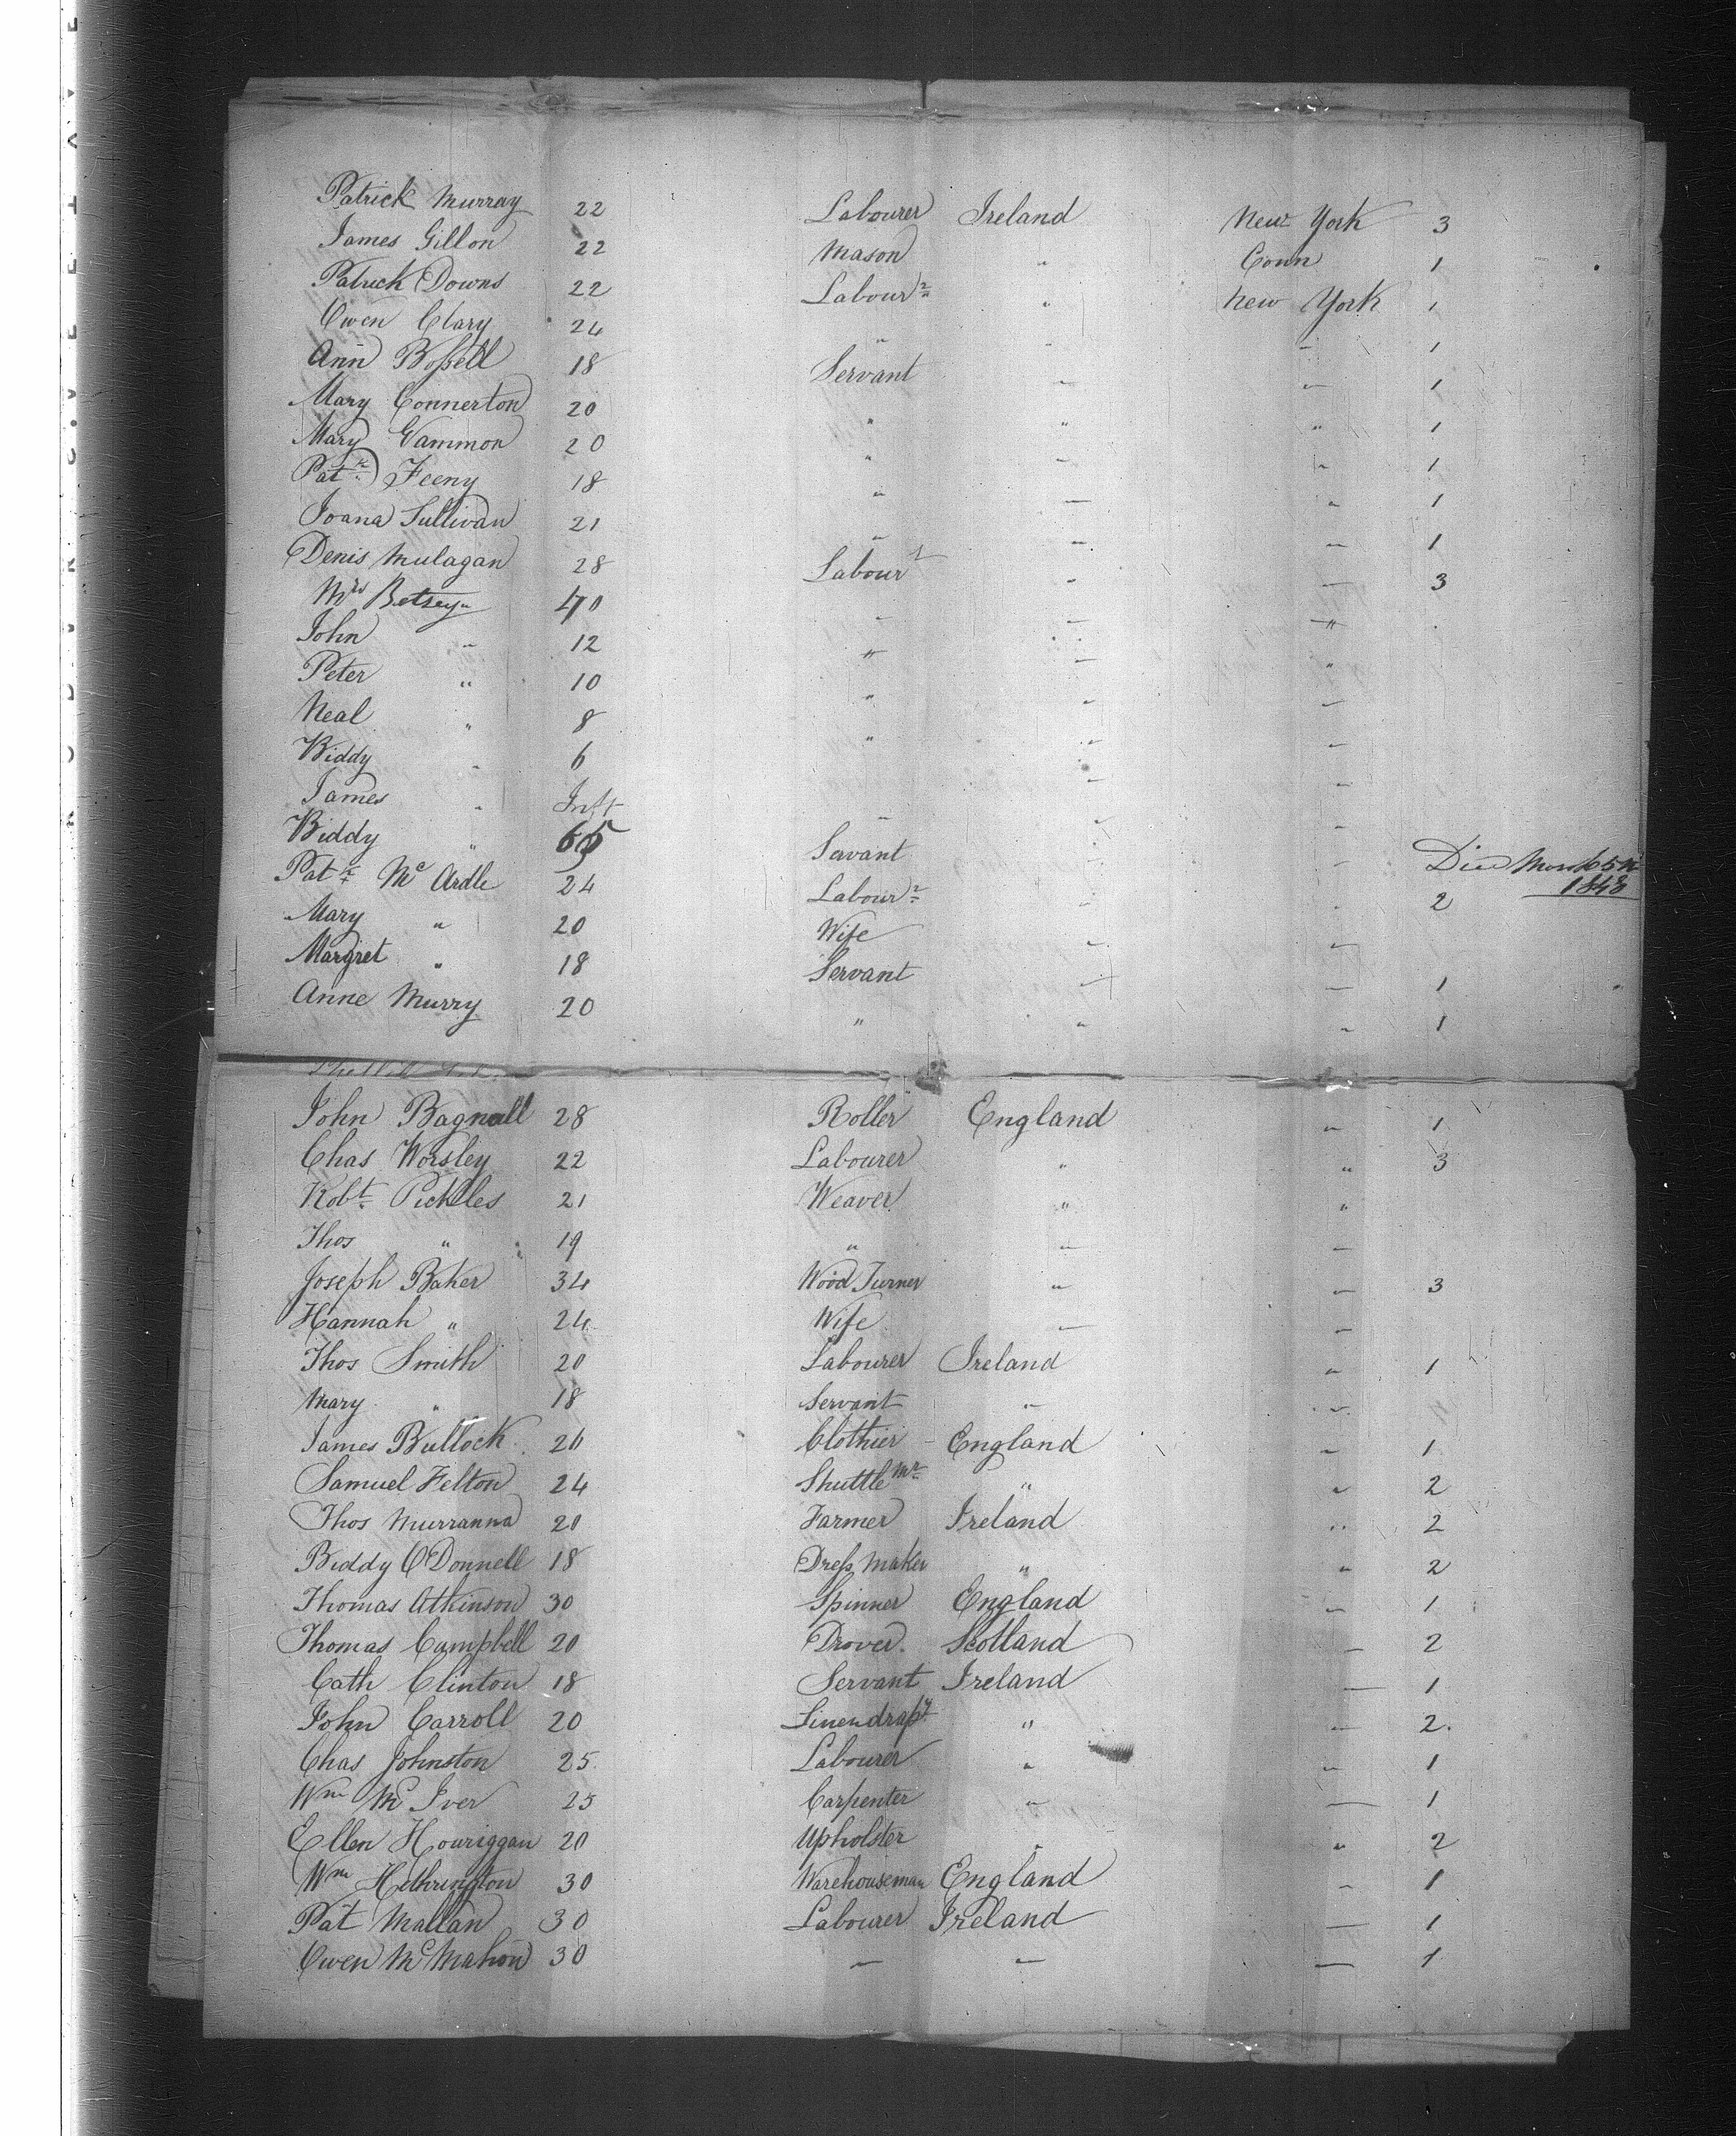 Patrick Murray 22 Labourer Ireland New York 3
James Gillon 22 Mason " Conn 1
Patrick Downs 22 Labourr " New York 1
Owen Clary 24 " " " 1
Ann Bossell 18 Servant " " 1
Mary Connerton 20 " " " 1
Mary Gammon 20 " " " 1
Patk Feeny 18 " " " 1
Joana Sullivan 21 " " " 1
Denis Mulagan 28 Labourr " " 3
Mrs Betsey " 40 " " "
John " 12 " " "
Peter " 10 " " "
Neal " 8 " " "
Biddy " 6 " "
James " Inft " " "
Biddy " 65 Servant " " Died 1848
Patk Mc Ardle 24 Labourr " " 2
Mary " 20 Wife " "
Margret " 18 Servant " " 1
Anne Murry 20 " " " 1
John Bagnall 28 Roller England " 1
Chas Worsley 22 Labourer " " 3
Robt Pickles 21 Weaver " "
Thos " 19 " " "
Joseph Baker 34 Wood Turner " " 3
Hannah " 24 Wife " "
Thos Smith 20 Labourer Ireland " 1
Mary " 18 Servant " "
James Bullock 20 Clothier England " 1
Samuel Felton 24 Shuttle Mr " " 2
Thos Murranna 20 Farmer Ireland " 2
Biddy O'Donnell 18 Dress Maker " " 2
Thomas Atkinson 30 Spinner England " 1
Thomas Campbell 20 Drover Scotland " 2
Cath Clinton 18 Servant Ireland " 1
John Carroll 20 Linendrapr " " 2.
Chas Johnston 25 Labourer " " 1
Wm Mc Iver 25 Carpenter " " 1
Ellen Houriggan 20 Upholster " " 2
Wm Hethrington 30 Warehouseman England " 1
Pat Mallan 30 Labourer Ireland " 1
Owen Mc Mahon 30 " " " 1